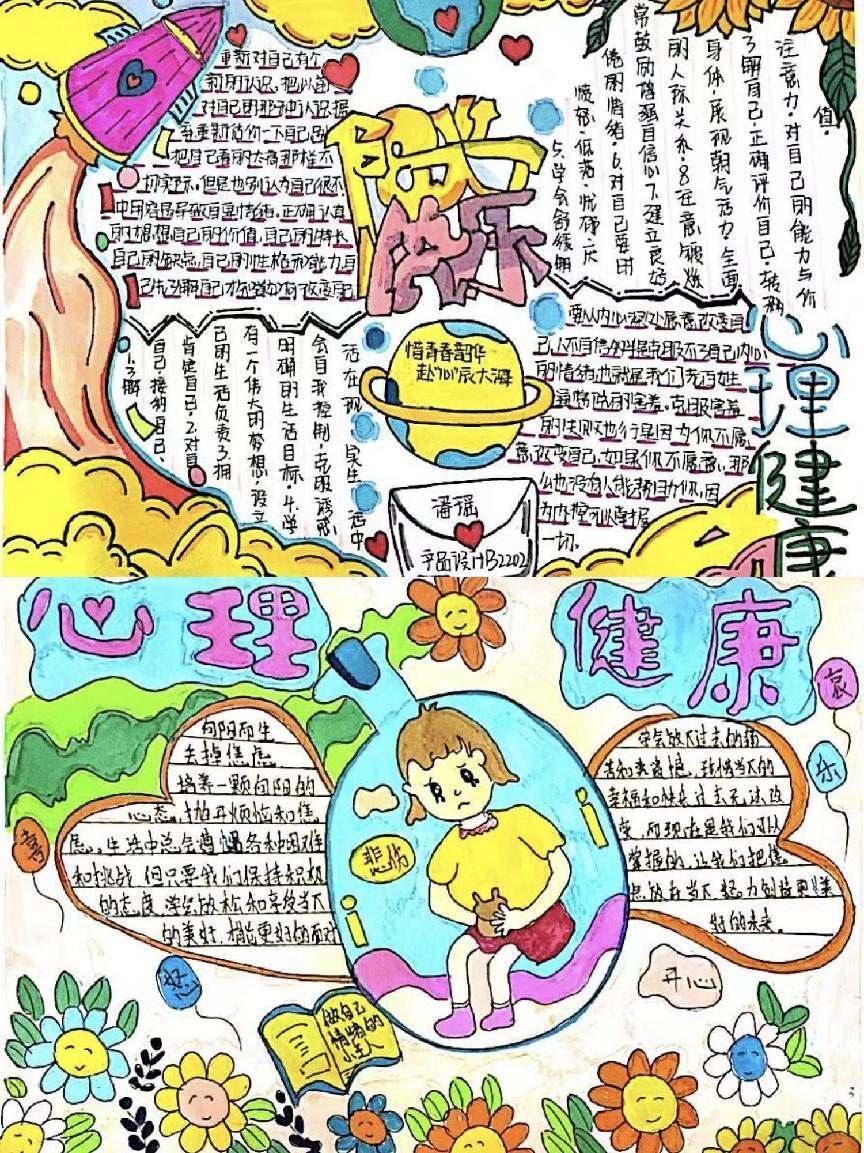 重新对自己有个
新的认识。把以前
对自己的那种认识
重新评价一下自己
把自己看的太高那样不
切实际。但是也别认为自己很不
中用容易导致自卑情绪。正确认真
的想想自己的价值,自己的特长
自己的缺点,自己的性格和能力自
己先了解自己才
快乐
注意力·对自己的能力与价
值·
了解自己·正确评价自己·转移
身体·展现朝气活力·全面
的人际关系·8在意锻炼
常鼓励增强自信心7.建立良好
倦的情绪·6.对自己要困
愤怒·低落·忧郁·厌
5.学会舒缓
要从内心深处愿意改变自
己,人不自信的
的情绪,也就是我们
克服害羞
的
意改变自己,如果你不愿意,那
么也没有人能帮到你,因
为
一切。
心理健康
惜青春韶华
赴心辰大海
潘瑶
平面设计B2202
活在现实生活中
会自我控制·克服诱惑
明确的生活目标·4.学
有一个伟大的梦想·设立
己的生活负责3.拥
肯定自己·2.对自
自己·接纳自己·
1.了解
心理健康
向阳而生
去掉焦虑
培养一颗向阳的
心态,抛开烦恼和焦
虑。生活中总会遭遇各种困难
和挑战,但只要我们保持积极
的态度,学会放松和享受当下
的美好,就能更好的面对
学会放下过去的痛
苦和
幸福和快乐过去无法改
变,而现在是我们可以
掌握的,让我们把焦
点放在当下,努力创造更美
好的未来。
喜
怒
哀
乐
悲伤
开心
做自己
情绪的
小主